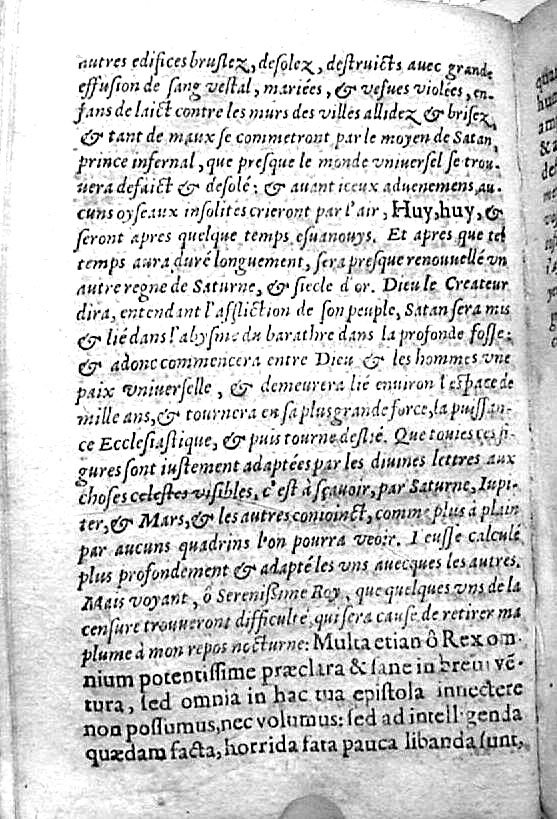 autres edifices bruslez, desolez, destruicts avec grande
effusion de sang vestal, mariées, & vefues violées, en-
fans de laict contre les murs des villes allidez & brisez,
& tant de maux se commetront par le moyen de Satan,
prince infernal, que presque le monde vniuersel se trou-
uera defaict & desolé: & auant iceux aduenemens, au-
cuns oyseaux insolites crieront par l'air, Huy, huy, &
seront apres quelque temps esuanouys. Et apres que tel
temps aura duré longuement, sera presque renouuellé vn
autre regne de Saturne, & siecle d'or. Dieu le Createur
dira, entendant l'affliction de son peuple, Satan sera mis
& lié dans l'abysme du barathre dans la profonde fosse:
& adonc commencera entre Dieu & les hommes vne
paix vniuerselle, & demeurera lié enuiron l'espace de
mille ans, & tournera en sa plus grande force, la puissan-
ce Ecclesiastique, & puis tourne deslié. Que toutes ces fi-
gures sont iustement adaptées par les diuines lettres aux
choses celestes visibles, c'est à sçauoir, par Saturne, Iupi-
ter, & Mars, & les autres conioinct, comme plus à plain
par aucuns quadrins l'on pourra veoir. I'eusse calculé
plus profondement & adapté les vns auecques les autres.
Mais voyant, ô Serenissime Roy, que quelques vns de la
censure trouueront difficulté, qui sera cause de retirer ma
plume à mon repos nocturne: Multa etian ô Rex om-
nium potentissime præclara & sane in breui vē-
tura, sed omnia in hac tua epistola innectere
non possumus, nec volumus: sed ad intelligenda
quædam facta, horrida fata pauca libanda sunt,